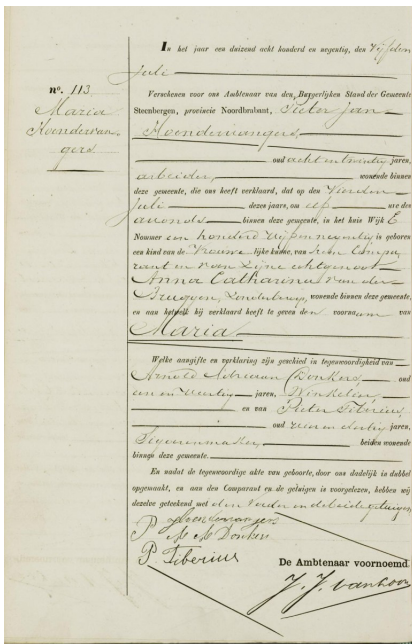 In het jaar een duizend acht honderd en negentig, den Vijfden
Juli
No. 113
Maria
Hoendervan-
gers
Verschenen voor ons Ambtenaar van den Burgerlijken Stand der Gemeente
Steenbergen, provincie Noordbrabant, Pieter Jan
Hoendervangers
oud acht en twintig jaren,
arbeider, wonende binnen
deze gemeente, die ons heeft verklaard, dat op den Vierden
Juli dezes jaars, om elf ure des
avonds binnen deze gemeente, in het huis Wijk E
Nommer een honderd vijf en negentig is geboren
een kind van de Vrouwe lijke kunne, van hem Compa-
rant en van zijne echtgenoot
Anna Catharina van der
Bruggen, wonende binnen deze gemeente,
en aan hetwelk hij verklaard heeft te geven den voornaam van
Maria
Welke aangifte en verklaring zijn geschied in tegenwoordigheid van
Arnold Adriaan Donkers oud
een en veertig jaren, Winkelier
en van Pieter Tiberius
oud en dertig jaren,
Sigarenmaker, beiden wonende
binnen deze gemeente.
En nadat de tegenwoordige akte van geboorte, door ons dadelijk in dubbel
opgemaakt, en aan den Comparant en de getuigen is voorgelezen, hebben wij
dezelve geteekend met den Vader en de beide getuigen
P Hoendervangers
Donkers
P. Tiberius
De Ambtenaar voornoemd
J. J. van Loon